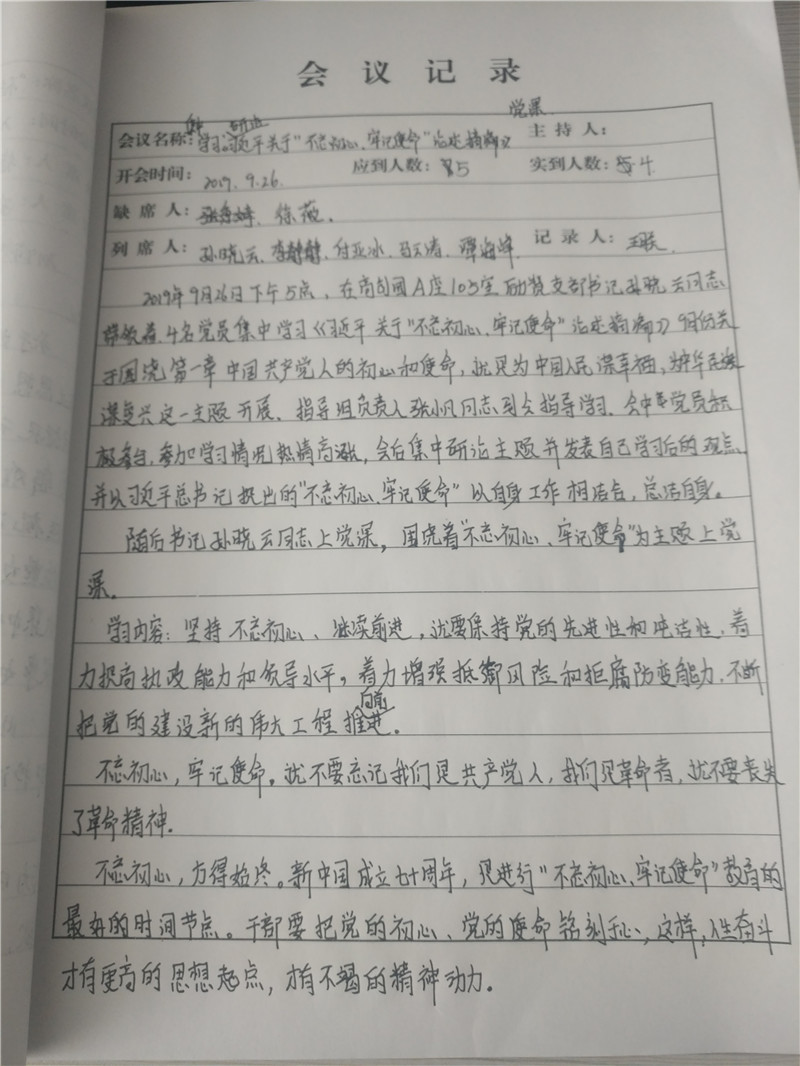 会 议 记 录
党课
研讨
会议名称：学习习近平关于“不忘初心、牢记使命”论述摘编 主 持 人：
开会时间：2019.9.26. 应到人数：5 实到人数：4
缺 席 人： 徐薇.
列 席 人：孙晓云、李静静、付亚冰、马云涛、谭海峰 记 录 人：王联
2019年9月26日下午5点，在商创园A座105室 励赞支部书记孙晓云同志
带领着4名党员集中学习《习近平关于“不忘初心、牢记使命”论述摘编》 9月份关
于围绕第一章中国共产党人的初心和使命，就是为中国人民谋幸福，为中华民族
谋复兴这一主题开展、指导组负责人张小凡同志到会指导学习、会中党员积
极 参加学习情况热情高涨，会后集中研论主题并发表自己学习后的观点
并以习近平总书记提出的“不忘初心、牢记使命”以自身工作相结合，总结自身。
随后书记孙晓云同志上党课，围绕着“不忘初心、牢记使命”为主题上党
课。
学习内容：坚持不忘初心、继续前进，就要保持党的先进性和纯洁性，着
力提高执政能力和领导水平，着力增强抵御风险和拒腐防变能力，不断
把党的建设新的伟大工程推向前进。
不忘初心，牢记使命。就不要忘记我们是共产党人，我们是革命者，就不要丧失
了革命精神.
不忘初心，方得始终。新中国成立七十周年，是进行“不忘初心、牢记使命”教育的
最好的时间节点。干部要把党的初心、党的使命铭刻于心，这样，人生奋斗
才有更高的思想起点，才有不竭的精神动力。